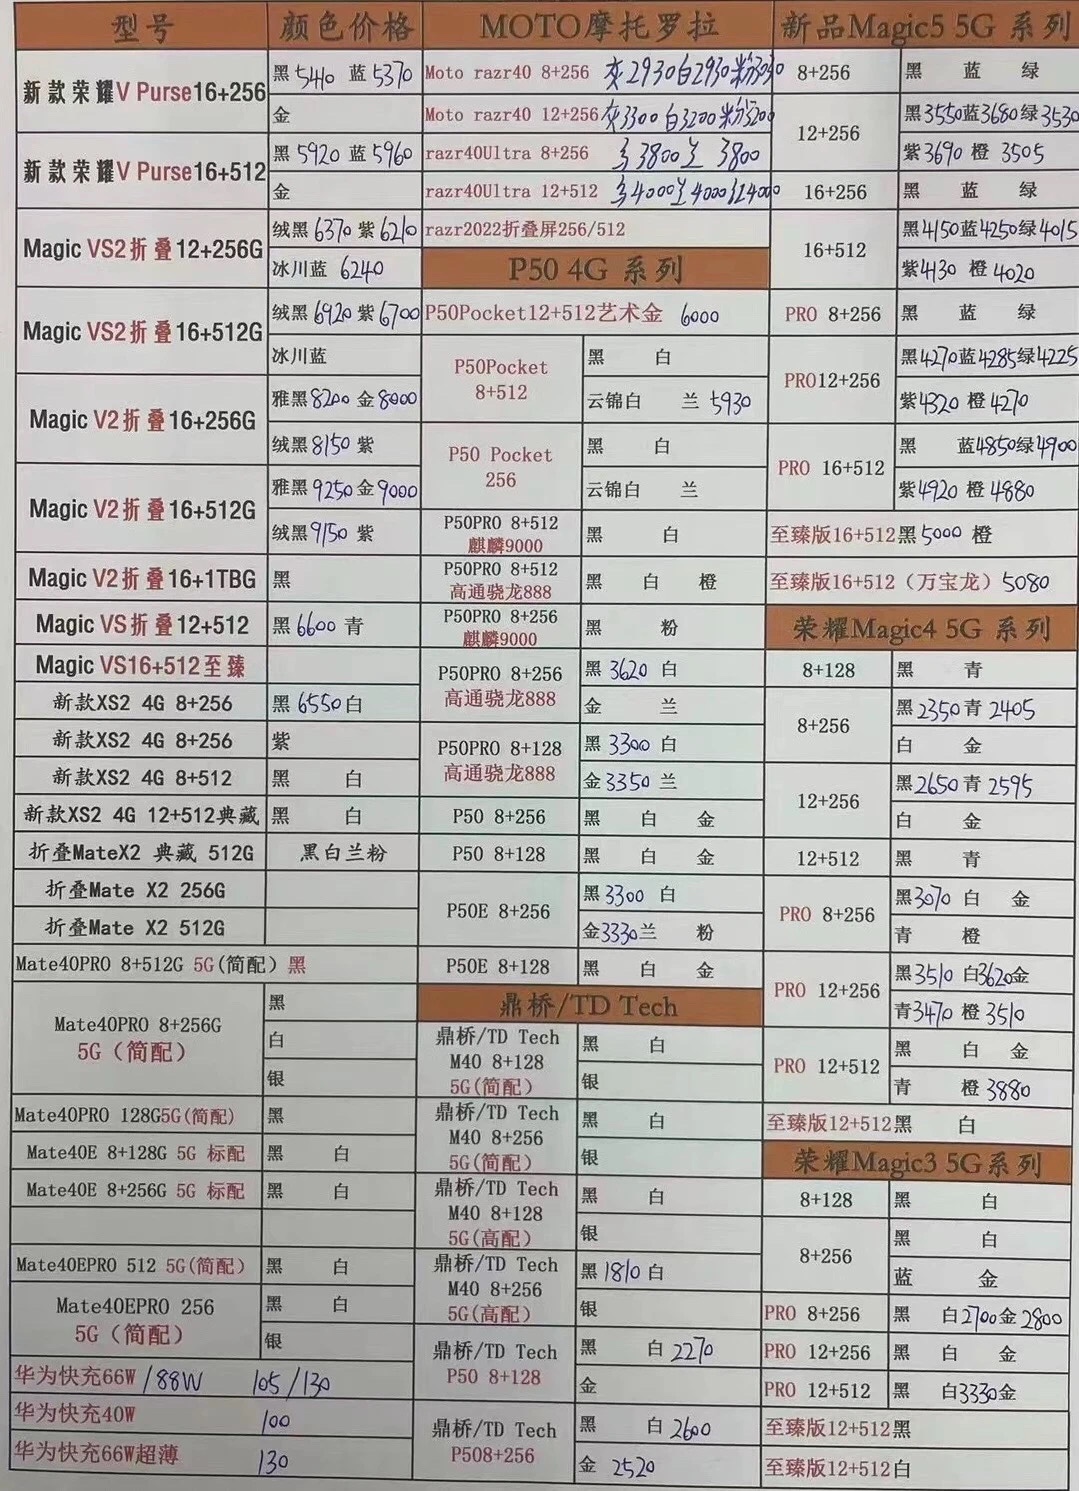 型号 颜色价格
新款荣耀V Purse16+256 黑 5440 蓝 5370
金
新款荣耀V Purse16+512 黑 5920 蓝 5960
金
Magic VS2折叠12+256G 绒黑 6370 紫 6210
冰川蓝 6240
Magic VS2折叠16+512G 绒黑 6920 紫 6700
冰川蓝
Magic V2折叠16+256G 雅黑 8200 金 8000
绒黑 8150 紫
Magic V2折叠16+512G 雅黑 9250 金 9000
绒黑 9150 紫
Magic V2折叠16+1TBG 黑
Magic VS折叠12+512 黑 6600 青
Magic VS16+512至臻
新款XS2 4G 8+256 黑 6550 白
新款XS2 4G 8+256 紫
新款XS2 4G 8+512 黑 白
新款XS2 4G 12+512典藏 黑 白
折叠MateX2 典藏 512G 黑白兰粉
折叠Mate X2 256G
折叠Mate X2 512G
Mate40PRO 8+512G 5G(简配) 黑
Mate40PRO 8+256G
5G (简配)
黑
白
银
Mate40PRO 128G5G(简配) 黑
Mate40E 8+128G 5G 标配 黑 白
Mate40E 8+256G 5G 标配 黑 白
Mate40EPRO 512 5G(简配) 黑 白
Mate40EPRO 256
5G (简配)
黑 白
银
华为快充66W /88W 105 /130
华为快充40W 100
华为快充66W超薄 130
MOTO摩托罗拉
Moto razr40 8+256 灰2930白2930粉3030
Moto razr40 12+256 灰3300 白3200 粉3200
razr40Ultra 8+256 3800 3800
razr40Ultra 12+512 4000 4000 4000
razr2022折叠屏256/512
P50 4G 系列
P50Pocket12+512艺术金 6000
P50Pocket
8+512
黑 白
云锦白 兰 5930
P50 Pocket
256
黑 白
云锦白 兰
P50PRO 8+512
麒麟9000
黑 白
P50PRO 8+512
高通骁龙888
黑 白 橙
P50PRO 8+256
麒麟9000
黑 粉
P50PRO 8+256
高通骁龙888
黑 3620 白
金 兰
P50PRO 8+128
高通骁龙888
黑 3300 白
金 3350 兰
P50 8+256 黑 白 金
P50 8+128 黑 白 金
P50E 8+256 黑 3300 白
金 3330 兰 粉
P50E 8+128 黑 白 金
鼎桥/TD Tech
鼎桥/TD Tech
M40 8+128
5G(简配)
黑 白
银
鼎桥/TD Tech
M40 8+256
5G(简配)
黑 白
银
鼎桥/TD Tech
M40 8+128
5G(高配)
黑 白
银
鼎桥/TD Tech
M40 8+256
5G(高配)
黑 1810 白
银
鼎桥/TD Tech
P50 8+128
黑 白 2270
金
鼎桥/TD Tech
P508+256
黑 白 2600
金 2520
新品Magic5 5G 系列
8+256 黑 蓝 绿
12+256 黑3550蓝3680绿3530
紫3690 橙 3505
16+256 黑 蓝 绿
16+512 黑4150蓝4250绿4015
紫4130 橙 4020
PRO 8+256 黑 蓝 绿
PRO12+256 黑4270蓝4285绿4225
紫4320 橙4270
PRO 16+512 黑 蓝4850绿4900
紫4920 橙 4880
至臻版16+512黑 5000 橙
至臻版16+512 (万宝龙) 5080
荣耀Magic4 5G 系列
8+128 黑 青
8+256 黑 2350 青 2405
白 金
12+256 黑2650 青 2595
白 金
12+512 黑 青
PRO 8+256 黑3070 白 金
青 橙
PRO 12+256 黑3510 白3620金
青3470 橙 3510
PRO 12+512 黑 白 金
青 橙 3880
至臻版12+512黑 白
荣耀Magic3 5G系列
8+128 黑 白
8+256 黑 白
蓝 金
PRO 8+256 黑 白2700金 2800
PRO 12+256 黑 白 金
PRO 12+512 黑 白3330金
至臻版12+512黑
至臻版12+512白